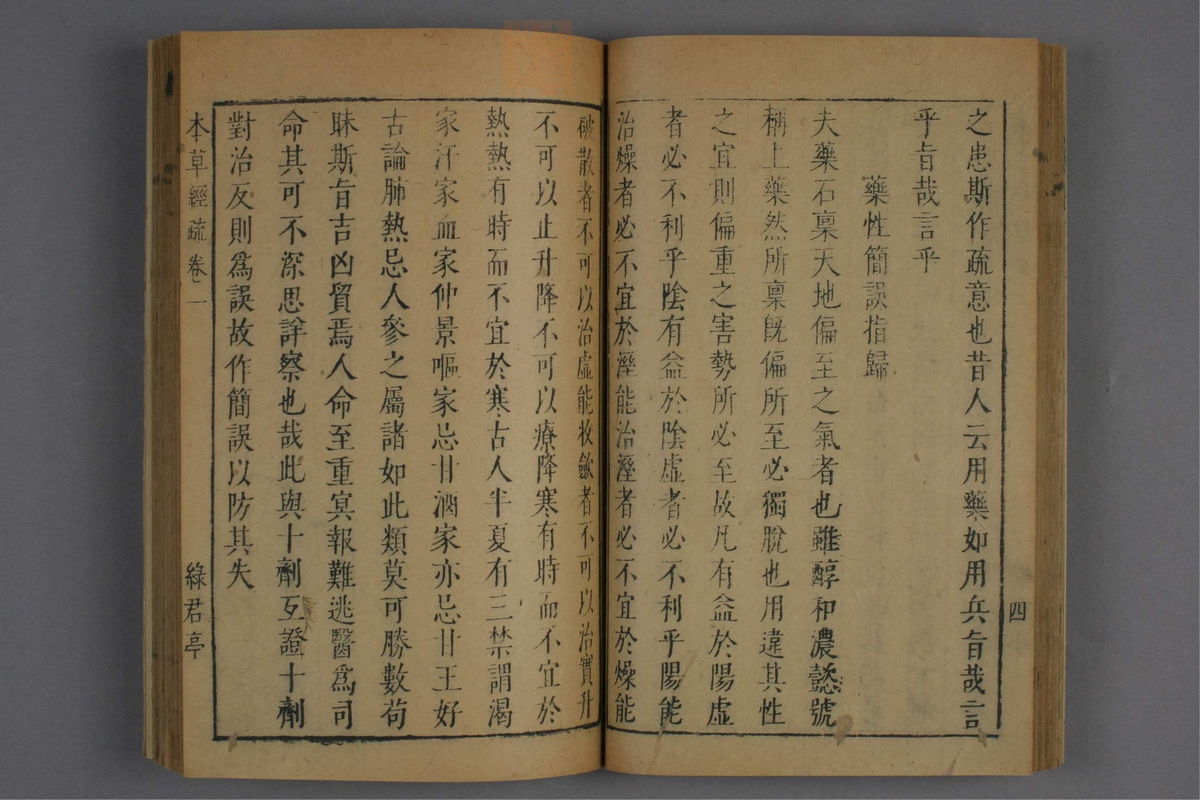 四
之患斯作疏意也昔人云用藥如用兵旨哉言
乎旨哉言乎
藥性簡誤指歸
夫藥石稟天地偏至之氣者也雖醇和濃懿號
稱上藥然所稟旣偏所至必獨脫也用違其性
之宜則偏重之害勢所必至故凡有益於陽虛
者必不利乎陰有益於陰虛者必不利乎陽能
治燥者必不宜於溼能治溼者必不宜於燥能
破散者不可以治虛能收斂者不可以治實升
不可以止升降不可以療降寒有時而不宜於
熱熱有時而不宜於寒古人半夏有三禁謂渴
家汗家血家仲景嘔家忌甘酒家亦忌甘王好
古論肺熱忌人參之屬諸如此類莫可勝數苟
昧斯旨吉凶貿焉人命至重冥報難逃醫爲司
命其可不深思詳察也哉此與十劑互證十劑
對治反則爲誤故作簡誤以防其失
本草經疏 卷一 綠君亭